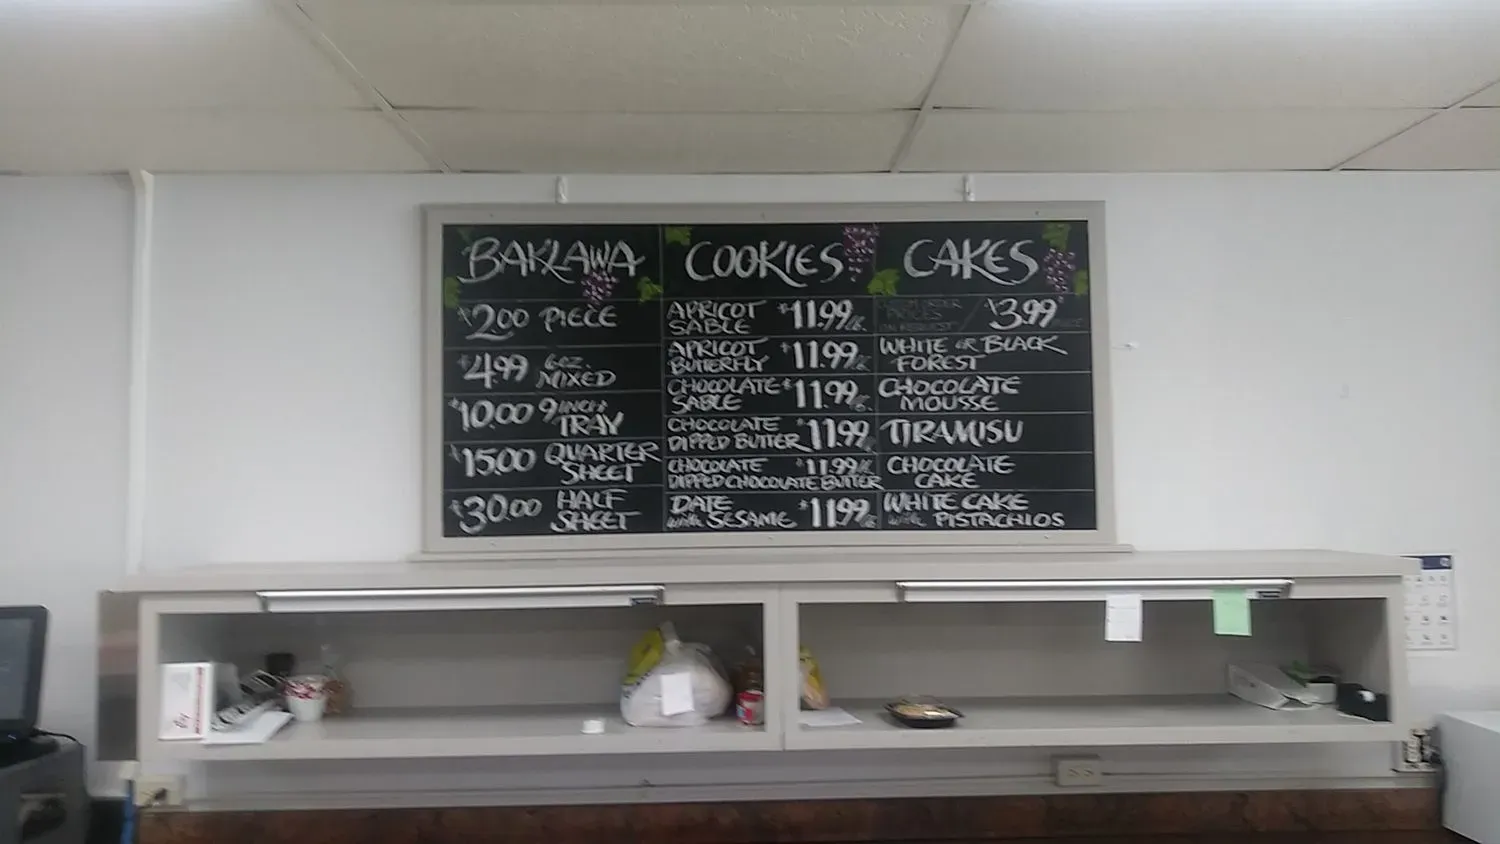 BAKLAWA
$2.00 PIECE
$4.99 6oz.
MIXED
$10.00 9 INCH
TRAY
$15.00 QUARTER
SHEET
$30.00 HALF
SHEET
COOKIES
APRICOT
SABLE $11.99
APRICOT
BUTTERFLY $11.99
CHOCOLATE
SABLE $11.99
CHOCOLATE
DIPPED BUTTER $11.99
CHOCOLATE $11.99
DIPPED CHOCOLATE BUTTER
DATE
with SESAME $11.99
CAKES
CUSTOM ORDER
PRICES
ON REQUEST / $3.99
WHITE OR BLACK
FOREST
CHOCOLATE
MOUSSE
TIRAMISU
CHOCOLATE
CAKE
WHITE CAKE
with PISTACHIOS